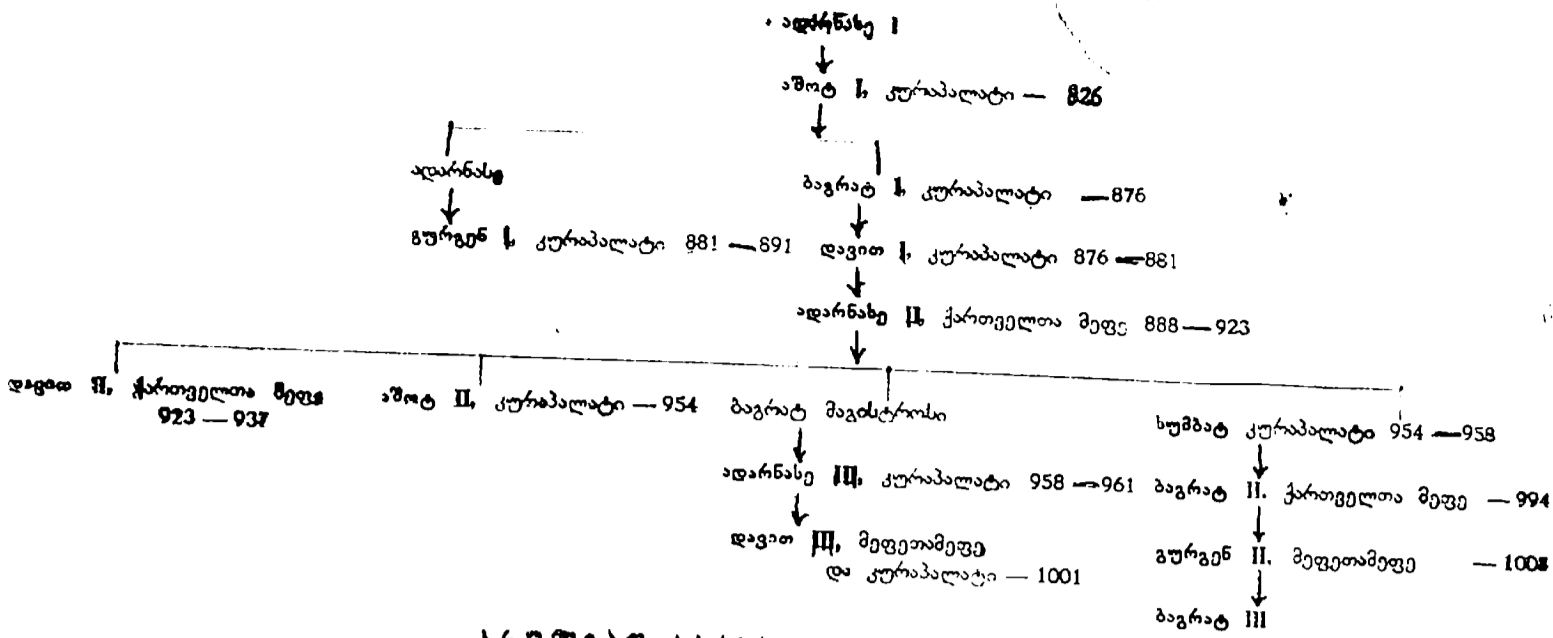 ადარნასე I
აშოტ I, კურაპალატი — 826
ადარნასე
ბაგრატ I, კურაპალატი — 876
გურგენ I, კურაპალატი 881 — 891
დავით I, კურაპალატი 876 — 881
ადარნასე II, ქართველთა მეფე 888 — 923
დავით II, ქართველთა მეფე
923 — 937
აშოტ II, კურაპალატი — 954
ბაგრატ მაგისტროსი
სუმბატ კურაპალატი 954 — 958
ადარნასე III, კურაპალატი 958 — 961
ბაგრატ II. ქართველთა მეფე — 994
დავით III, მეფეთამეფე
და კურაპალატი — 1001
გურგენ II. მეფეთამეფე — 1008
ბაგრატ III